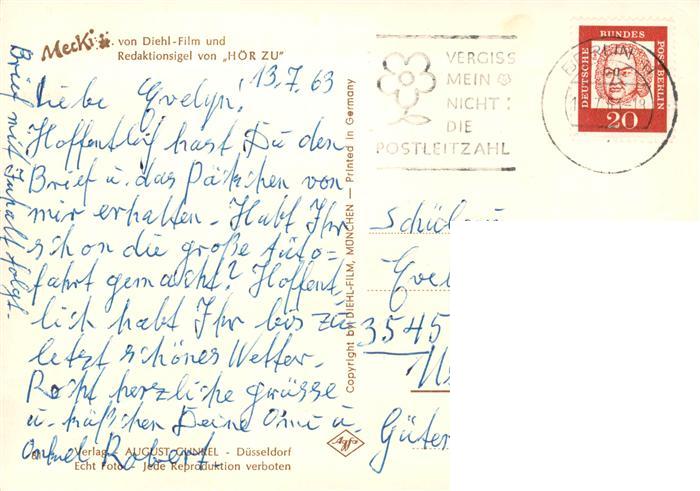 Mecki .. von Diehl-Film und
Redaktionsigel von „HÖR ZU"
13.7.63
Liebe Evelyn!
Hoffentlich hast Du den
Brief u. das Päckchen von
mir erhalten. Habt Ihr
schon die große Auto=
fahrt gemacht? Hoffent
lich habt Ihr bis zu
letzt schönes Wetter.
Recht herzliche grüsse
u. Küßchen Deine Omi u.
Onkel Robert.
Verlag - AUGUST GUNKEL - Düsseldorf
Echt Foto - Jede Reproduktion verboten
Brief mit Inhalt folgt.
Copyright by DIEHL-FILM, MÜNCHEN — Printed in Germany
Agfa
VERGISS
MEIN
NICHT:
DIE
POSTLEITZAHL
BERLIN
DEUTSCHE BUNDESPOST BERLIN
20
Schüler
Eve
3545
Güter